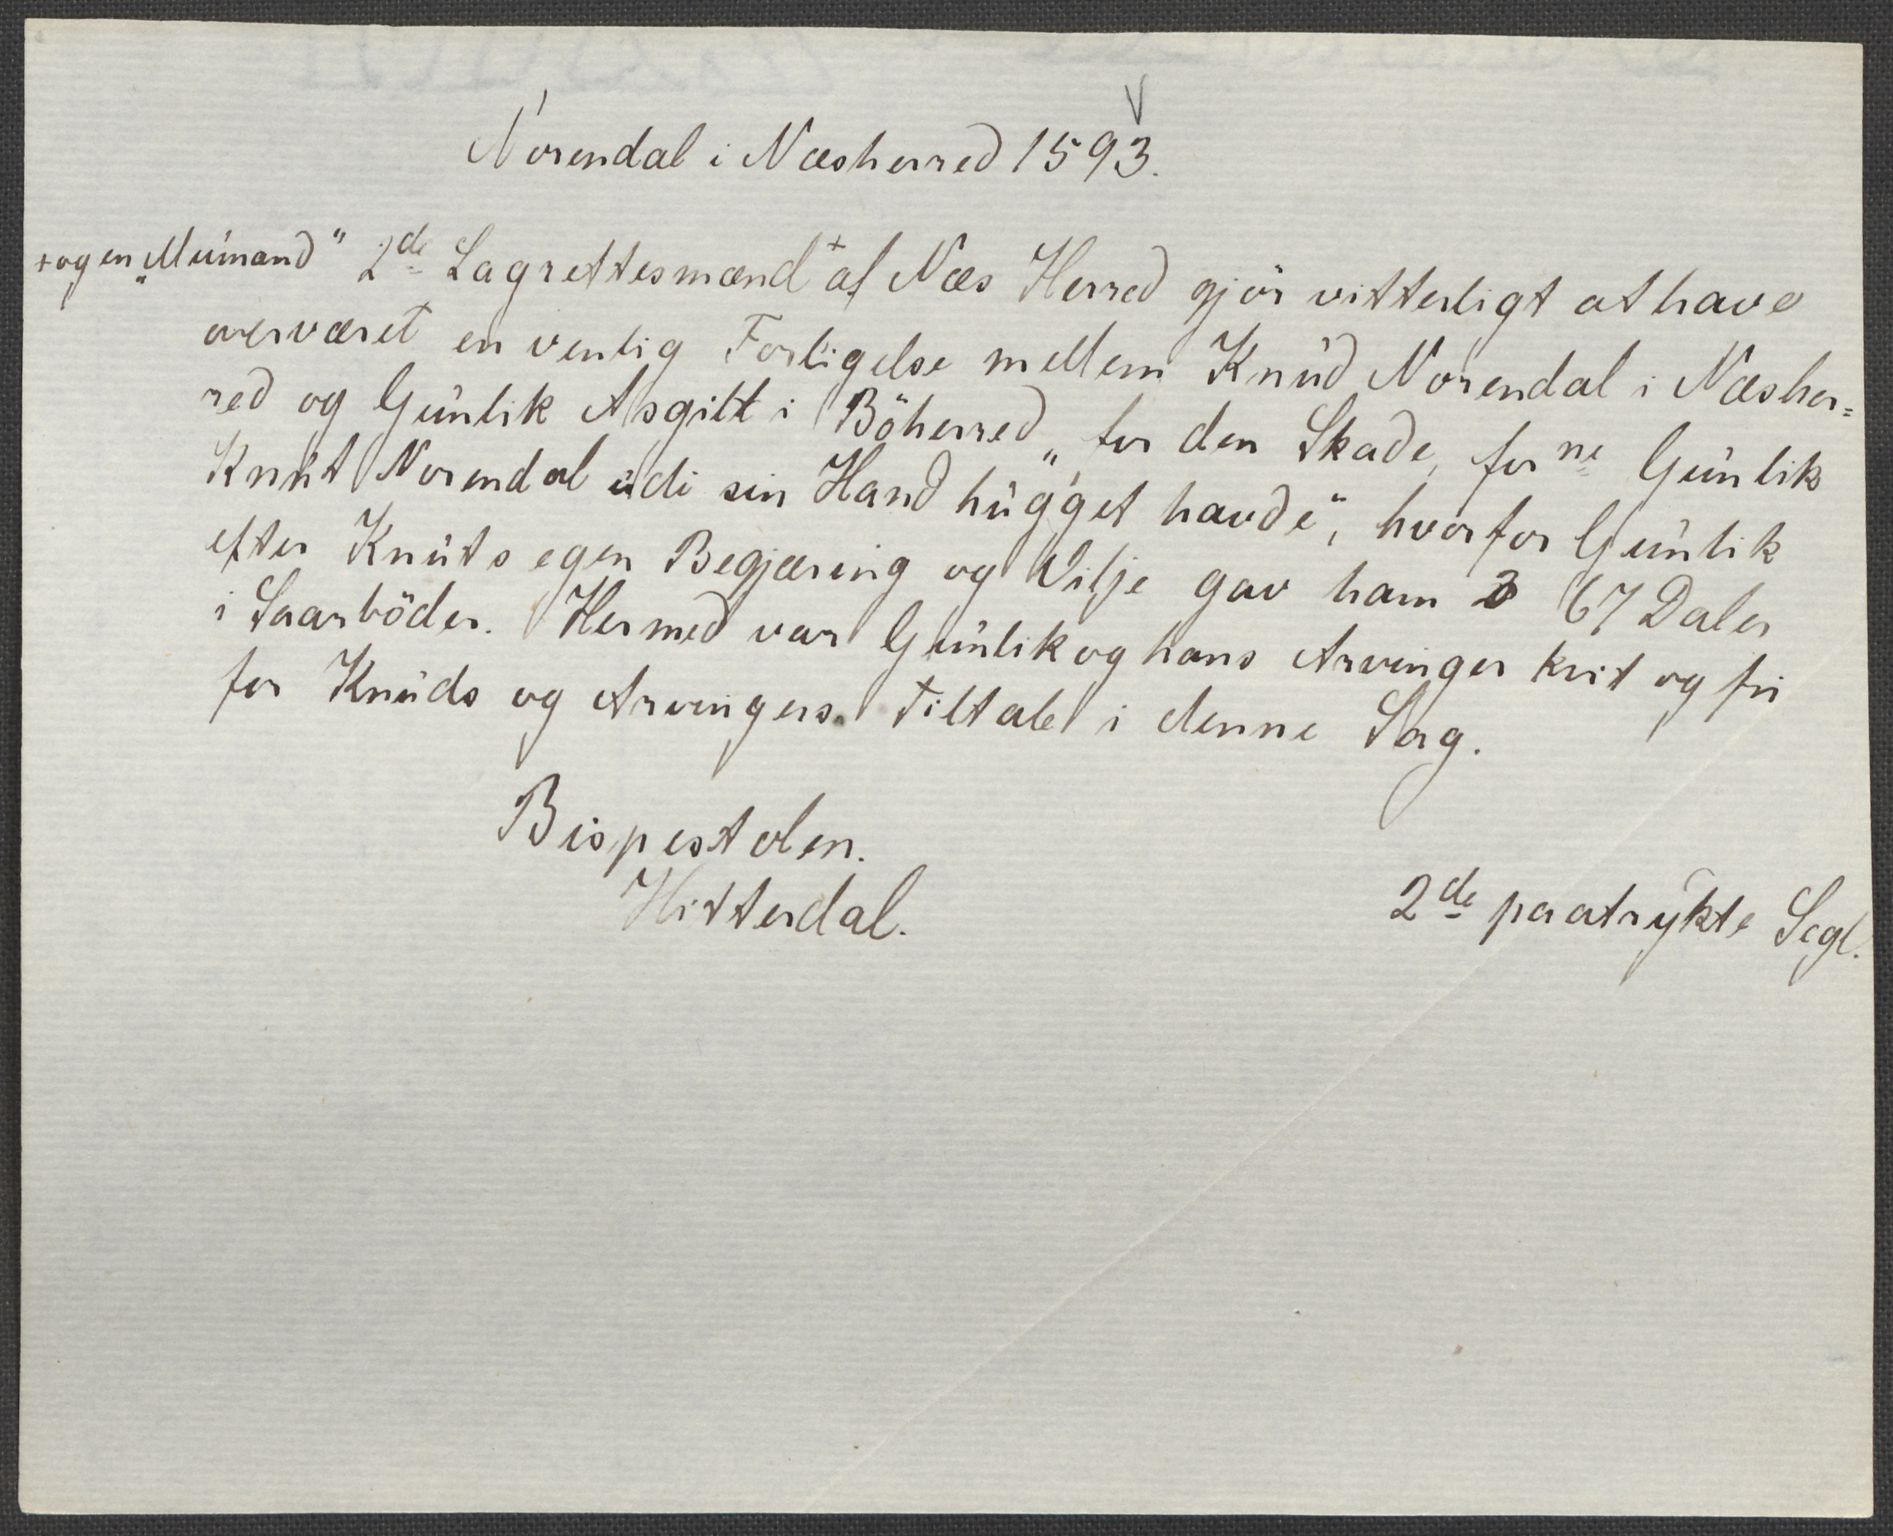 V
Norendal i Næsherred 1593.
+ og en „Meimand" 2de Lagrettesmænd + af Næs Herred gjör vitterligt at have
overværet en venlig Forligelse mellem Knud Norendal i Næsher=
red og Gunlik Asgitt i Böherred „for den Skade, forne Gunlik
Knut Norendal udi sin Hand hugget havde", hvorfor Gunlik
efter Knuts egen Begjæring og Vilje gav ham 67 Daler
i Saarböder. Hermed var Gunlik og hans Arvinger kvit og fri
for Knuds og Arvingers Tiltale i denne Sag.
Bispestolen.
Hitterdal.
2de paatrykte Segl.